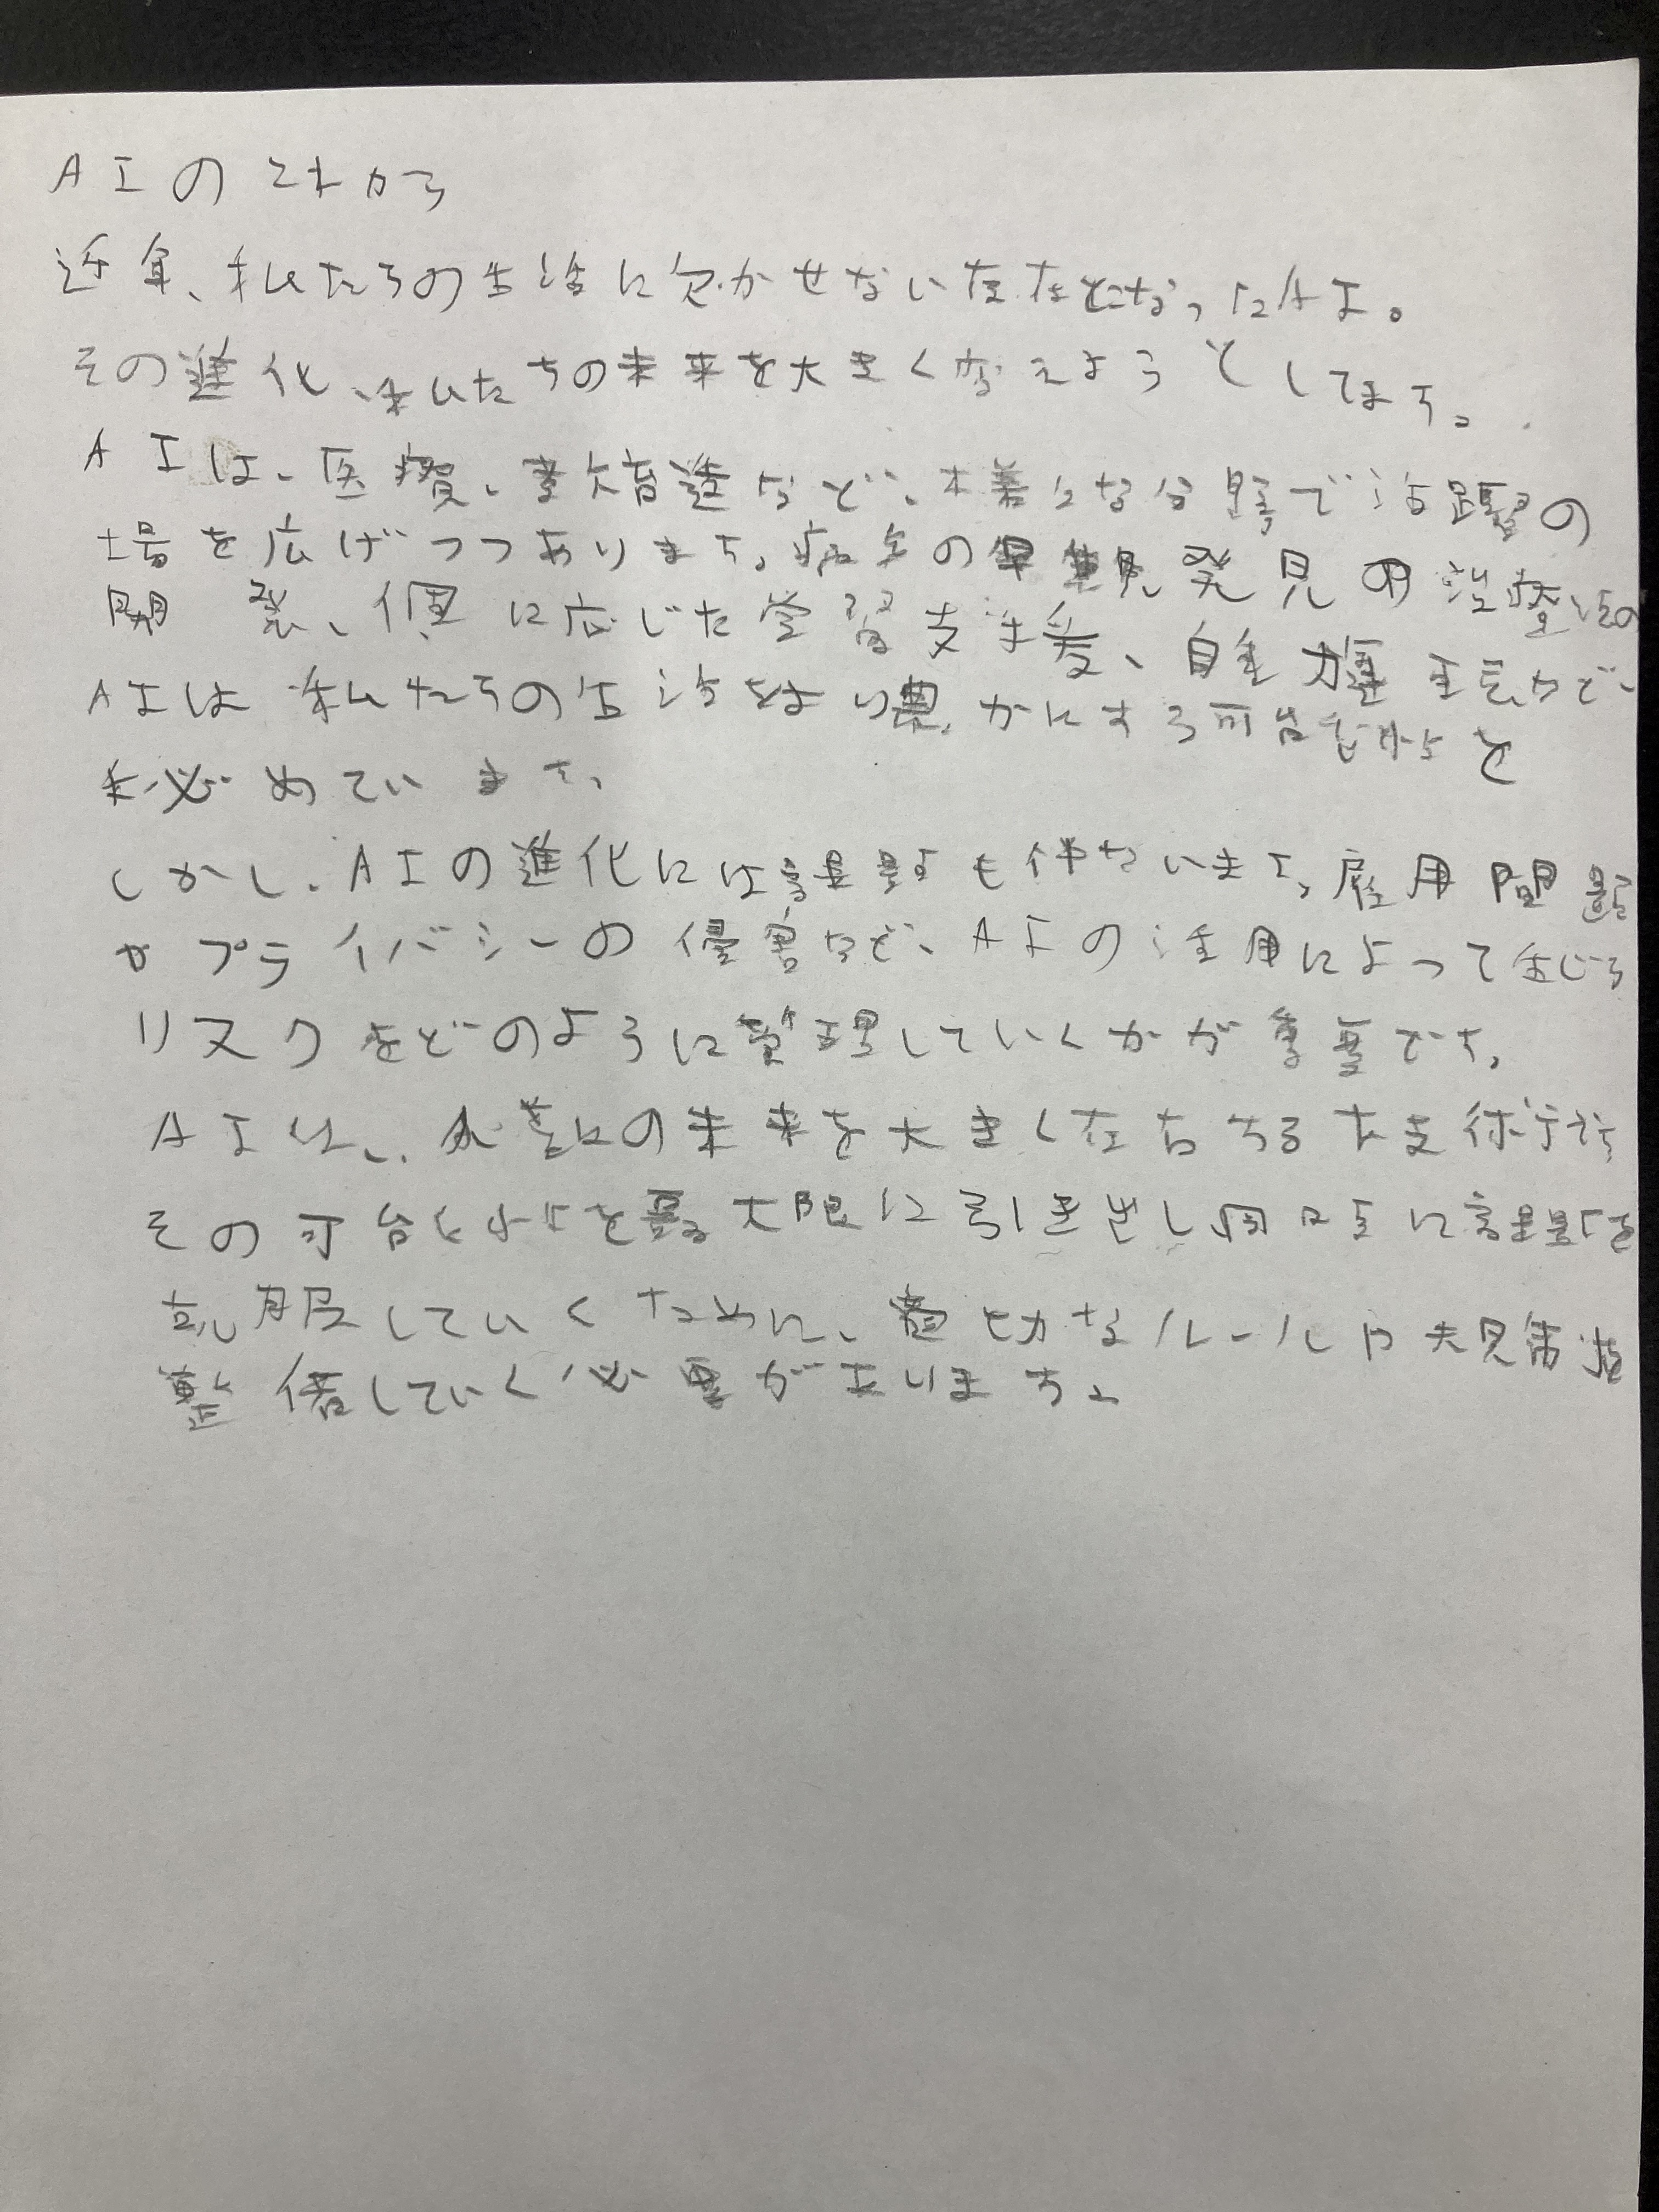 AIのこれから
近年、私たちの生活に欠かせない存在となったAI。
その進化、私たちの未来を大きく変えようとしてます。
AIは、医療、教育など、様々な分野で活躍の
場を広げつつあります。病気の早期発見の治療法の
開発、個に応じた学習支援、自動運転など、
AIは私たちの生活をより豊かにする可能性を
秘めています。
しかし、AIの進化には課題も伴ないます。雇用問題
やプライバシーの侵害など、AIの活用によって生じる
リスクをどのように管理していくかが重要です。
AIは、人類の未来を大きく左右する技術です
その可能性を最大限に引き出し同時に課題を
克服していくために、適切なルールや規制を
整備していく必要があります。